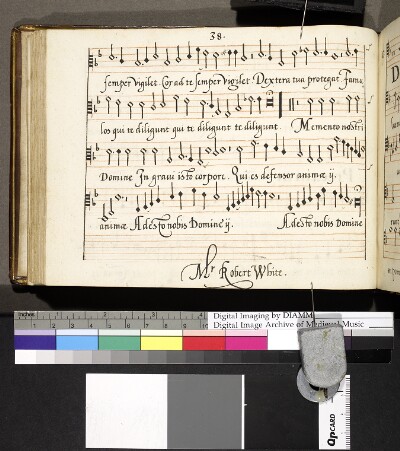 38.
semper vigilet Cor ad te semper vigilet Dextera tua protegat Famu
los qui te diligunt qui te diligunt te diligunt. Memento nostri
Domine In gravi isto corpore. Qui es defensor animæ ij.
animæ Adesto nobis Domine ij. Adesto nobis Domine
Mr Robert White.
inches 1 2 3 4
Digital Imaging by DIAMM
Digital Image Archive of Medieval Music
QPCARD